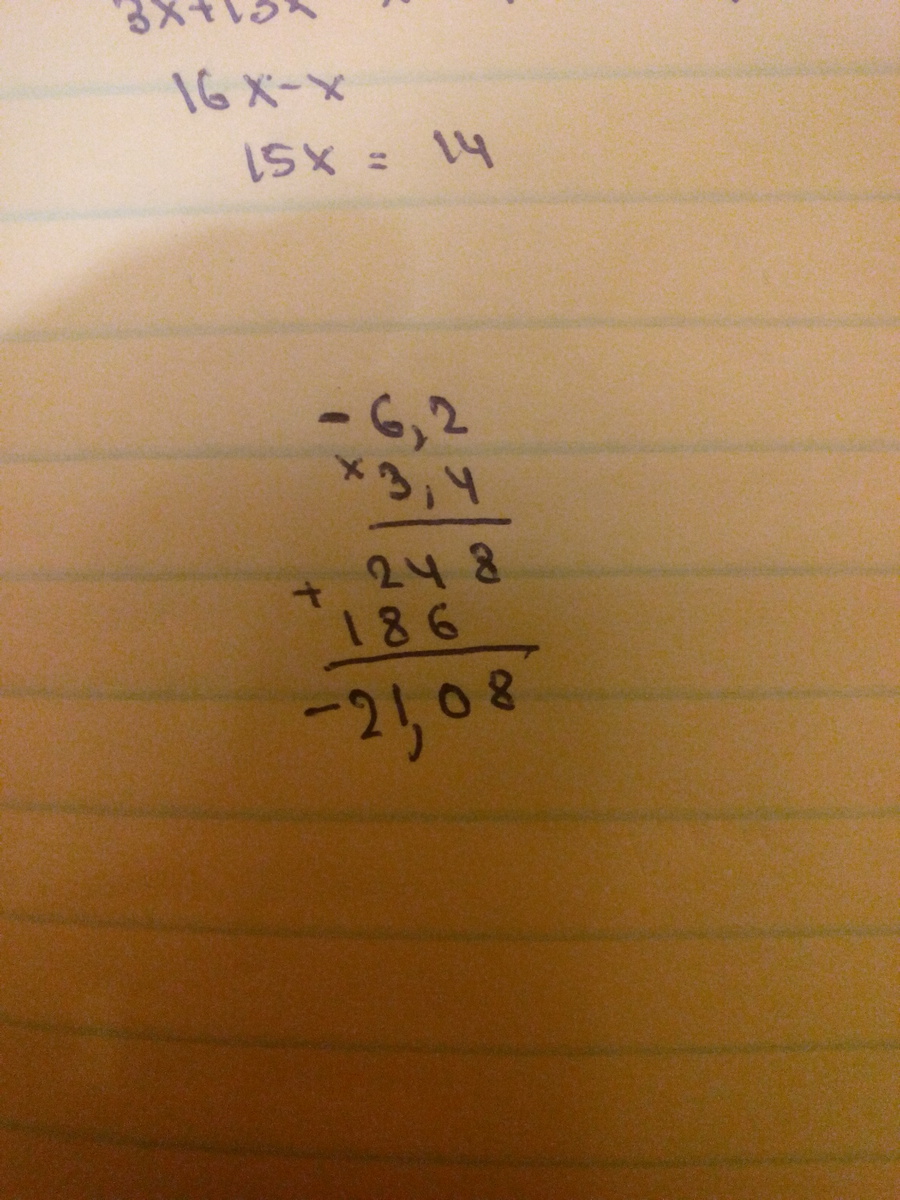 3x+13x
16x-x
15x = 14
-6,2
x 3,4
248
+
186
-21,08